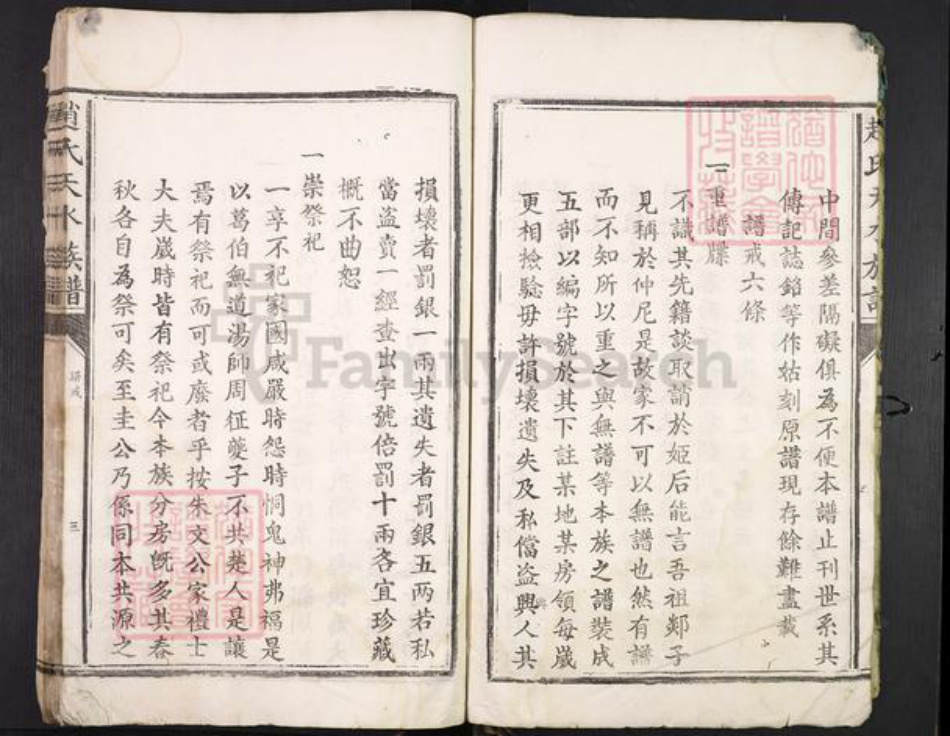 中間參差隔礙俱為不便本譜止刊世系其
傳記誌銘等作姑刻原譜現存餘難盡載
譜戒六條
一重譜牒
不識其先籍談取誚於姬后能言吾祖郯子
見稱於仲尼是故家不可以無譜也然有譜
而不知所以重之與無譜等本族之譜裝成
五部以編字號於其下註某地某房領每歲
更相撿驗毋許損壞遺失及私儅盜與人其
趙氏天水族譜
損壞者罰銀一兩其遺失者罰銀五两若私
當盜賣一經查出字號倍罰十兩各宜珍藏
概不曲恕
一崇祭祀
一享不祀家國咸嚴時怨時恫鬼神弗福是
以葛伯無道湯師周征夔子不共楚人是讓
焉有祭祀而可或廢者乎按朱文公家禮士
大夫歲時皆有祭祀今本族分房旣多其春
秋各自為祭可矣至圭公乃係同本共源之
趙氏天水族譜
譜戒
三
FamilySearch